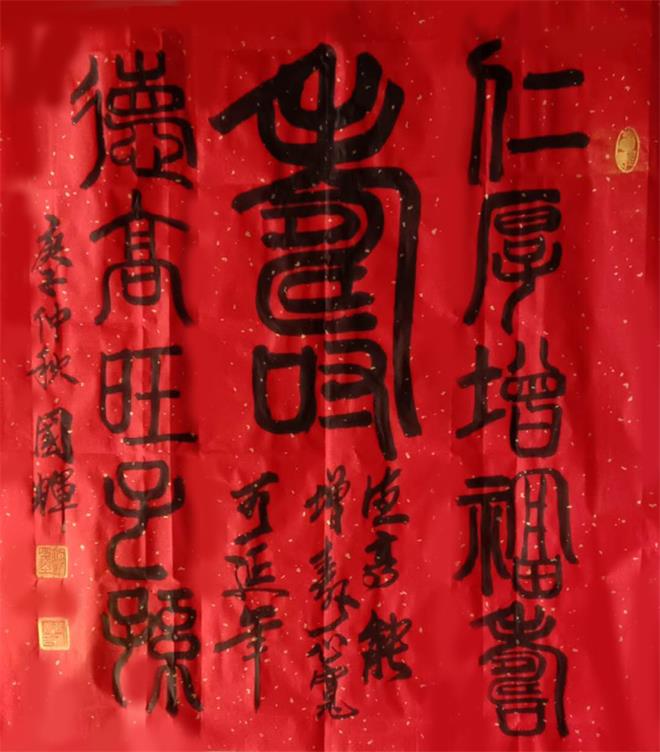 仁厚增福壽
壽
德高能
增壽心寬
可延年
德高旺子孫
庚子仲秋國暉